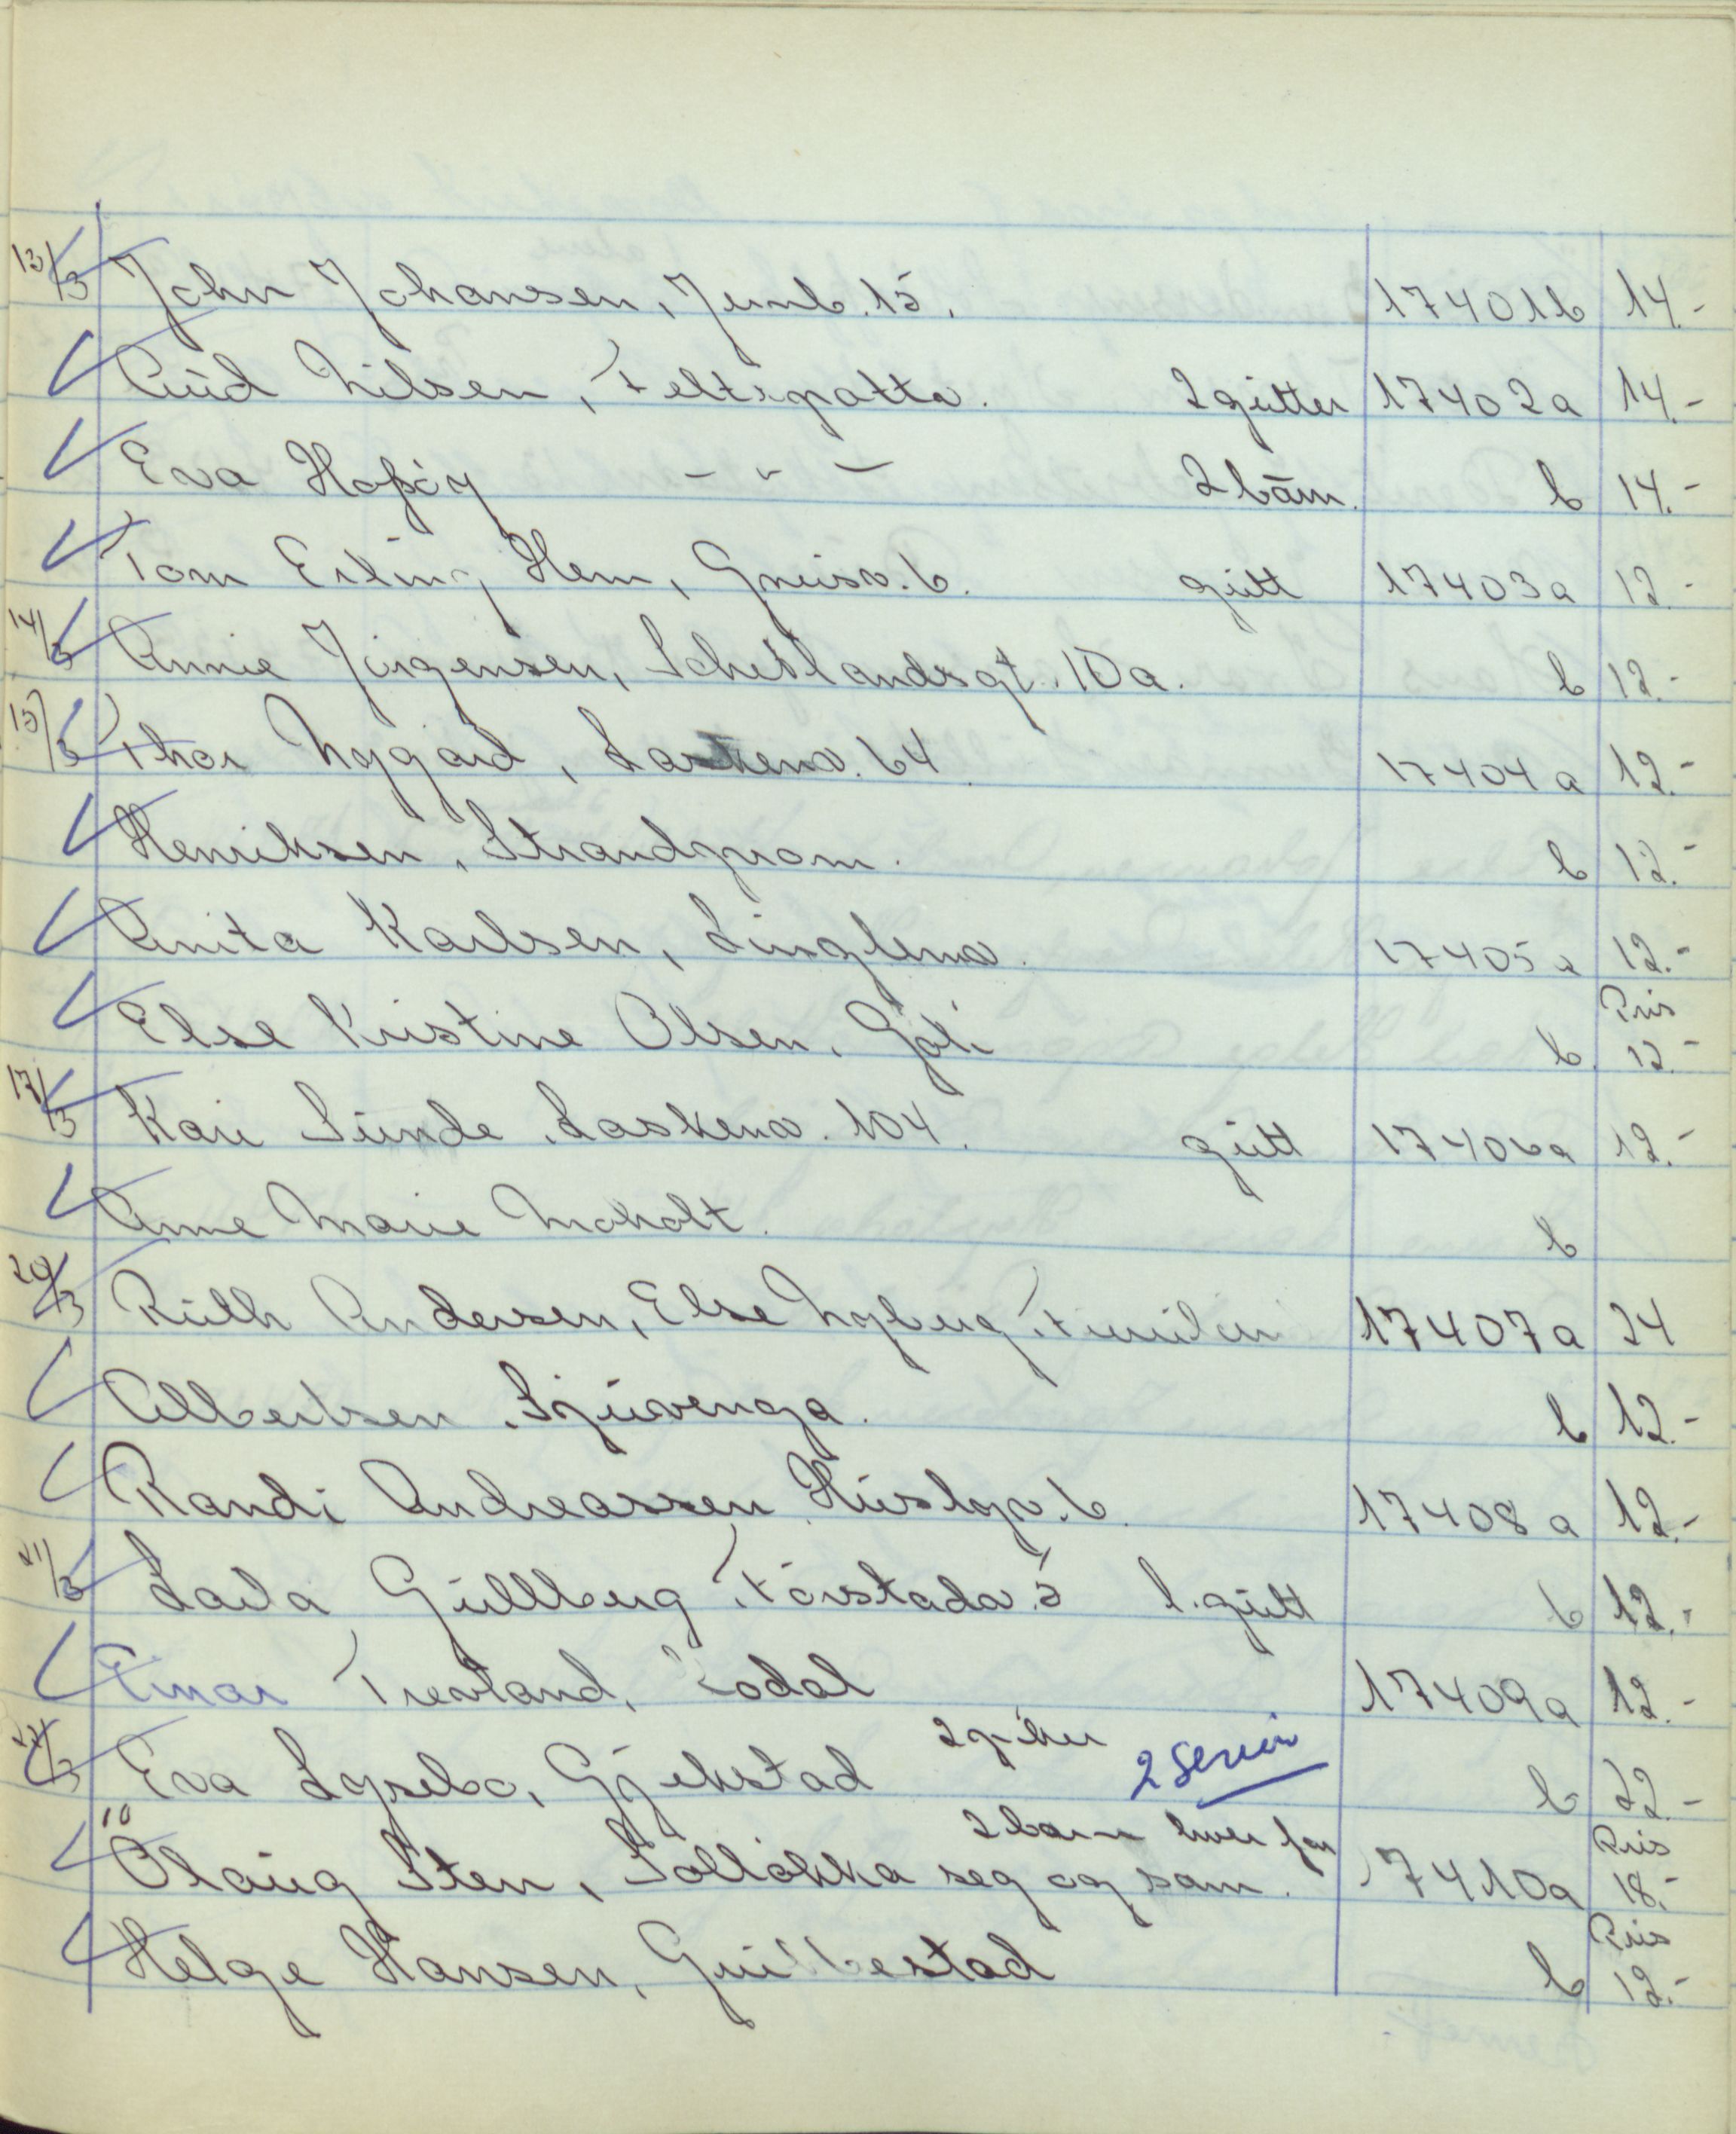 13/3 John Johansen, Jernb. 15. 17401b 14.-
Aud Nilsen, Feltspatta. 2 gutter 17402a 14.-
Eva Hassøy - " - 2 barn. b 14.-
Tom Erling Hem, Gneisv. 6. gutt 17403a 12.-
14/3 Annie Jørgensen, Schetlandsgt. 10a. b 12.-
15/3 Thor Nygård, Laskenv. 64 17404a 12.-
Henriksen, Strandprom. b 12.-
Anita Karlsen, 17405a 12.-
Pris
Else Kristine Olsen, b 12.-
17/3 Kari Sunde, Laskenv. 104. gutt 17406a 12.-
Anne Marie Moholt. b
20/3 Ruth Andersen, Else Nyberg, 17407a 24
Albertsen, Sjuvenga. b 12.-
Randi Andreassen, Husbyv. 6. 17408a 12.-
21/3 Laila Gullberg, Torstadv. 5 l. gutt b 12.-
Einar Trevland, Kodal 17409a 12.-
2 piker
22/3 Eva Lysebo, Gjekstad 2 serier b 22.-
10 2 barn hver for Pris
Olaug Sten, Solløkka seg og sam. 17410a 18.-
Pris
Helge Hansen, b 12.-